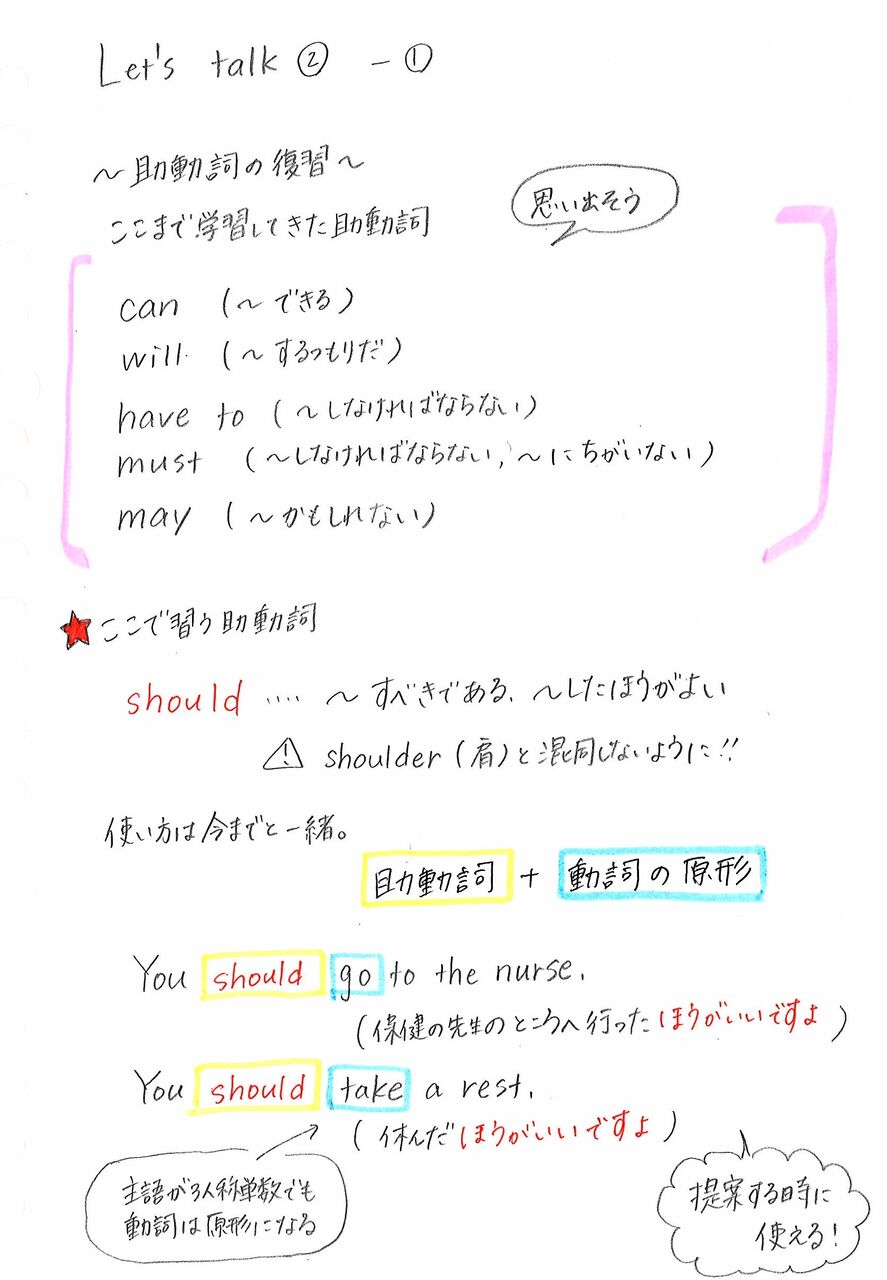 Let's talk ② - ①
～助動詞の復習～
思い出そう
ここまで学習してきた助動詞
can (～できる)
will (～するつもりだ)
have to (～しなければならない)
must (～しなければならない, ～にちがいない)
may (～かもしれない)
★ここで習う助動詞
should ‥‥ ～すべきである、～したほうがよい
⚠ shoulder (肩)と混同しないように!!
使い方は今までと一緒。
助動詞 + 動詞の原形
You should go to the nurse.
(保健の先生のところへ行ったほうがいいですよ)
You should take a rest.
(休んだほうがいいですよ)
主語が3人称単数でも
動詞は原形になる
提案する時に
使える!